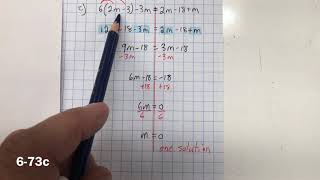 c) 6(2m-3)-3m=2m-18+m
12 -18-3m=2m-18+m
9m-18=3m-18
-3m -3m
6m-18=-18
+18 +18
6m=0
6 6
m=0
one solution
6-73c